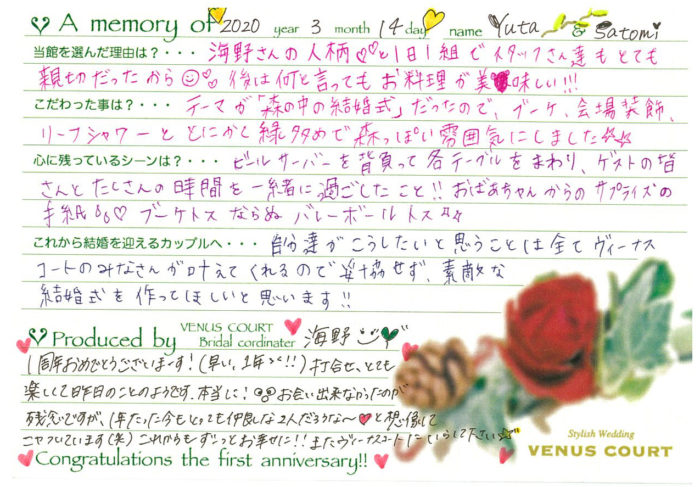 A memory of 2020 year 3 month 14 day name Yuta & Satomi
当館を選んだ理由は?・・・ 海野さんの人柄♡♡と1日1組でスタッフさん達もとても
親切だったから☺♡ 後は何と言ってもお料理が美味しい!!!
こだわった事は?・・・ テーマが「森の中の結婚式」だったので、ブーケ、会場装飾、
リーフシャワーと とにかく緑多めで森っぽい雰囲気にしました☆☆
心に残っているシーンは?・・・ ビールサーバーを背負って各テーブルをまわり、ゲストの皆
さんとたくさんの時間を一緒に過ごしたこと!! おばあちゃんからのサプライズの
手紙♡ ブーケトスならぬバレーボールトス
これから結婚を迎えるカップルへ・・・ 自分達がこうしたいと思うことは全てヴィーナス
コートのみなさんが叶えてくれるので妥協せず、素敵な
結婚式を作ってほしいと思います!!
Produced by VENUS COURT Bridal cordinater 海野
1周年おめでとうございます!(早い、1年って!!)打合せ、とても
楽しくて昨日のことのようです。本当に! お会い出来なかったのが
残念ですが、1年たった今もとっても仲良しな2人だろうな〜♥と想像して
ニヤついています(笑) これからもずっとお幸せに!!またヴィーナスコートにいらして下さい☆
Congratulations the first anniversary!!
Stylish Wedding
VENUS COURT